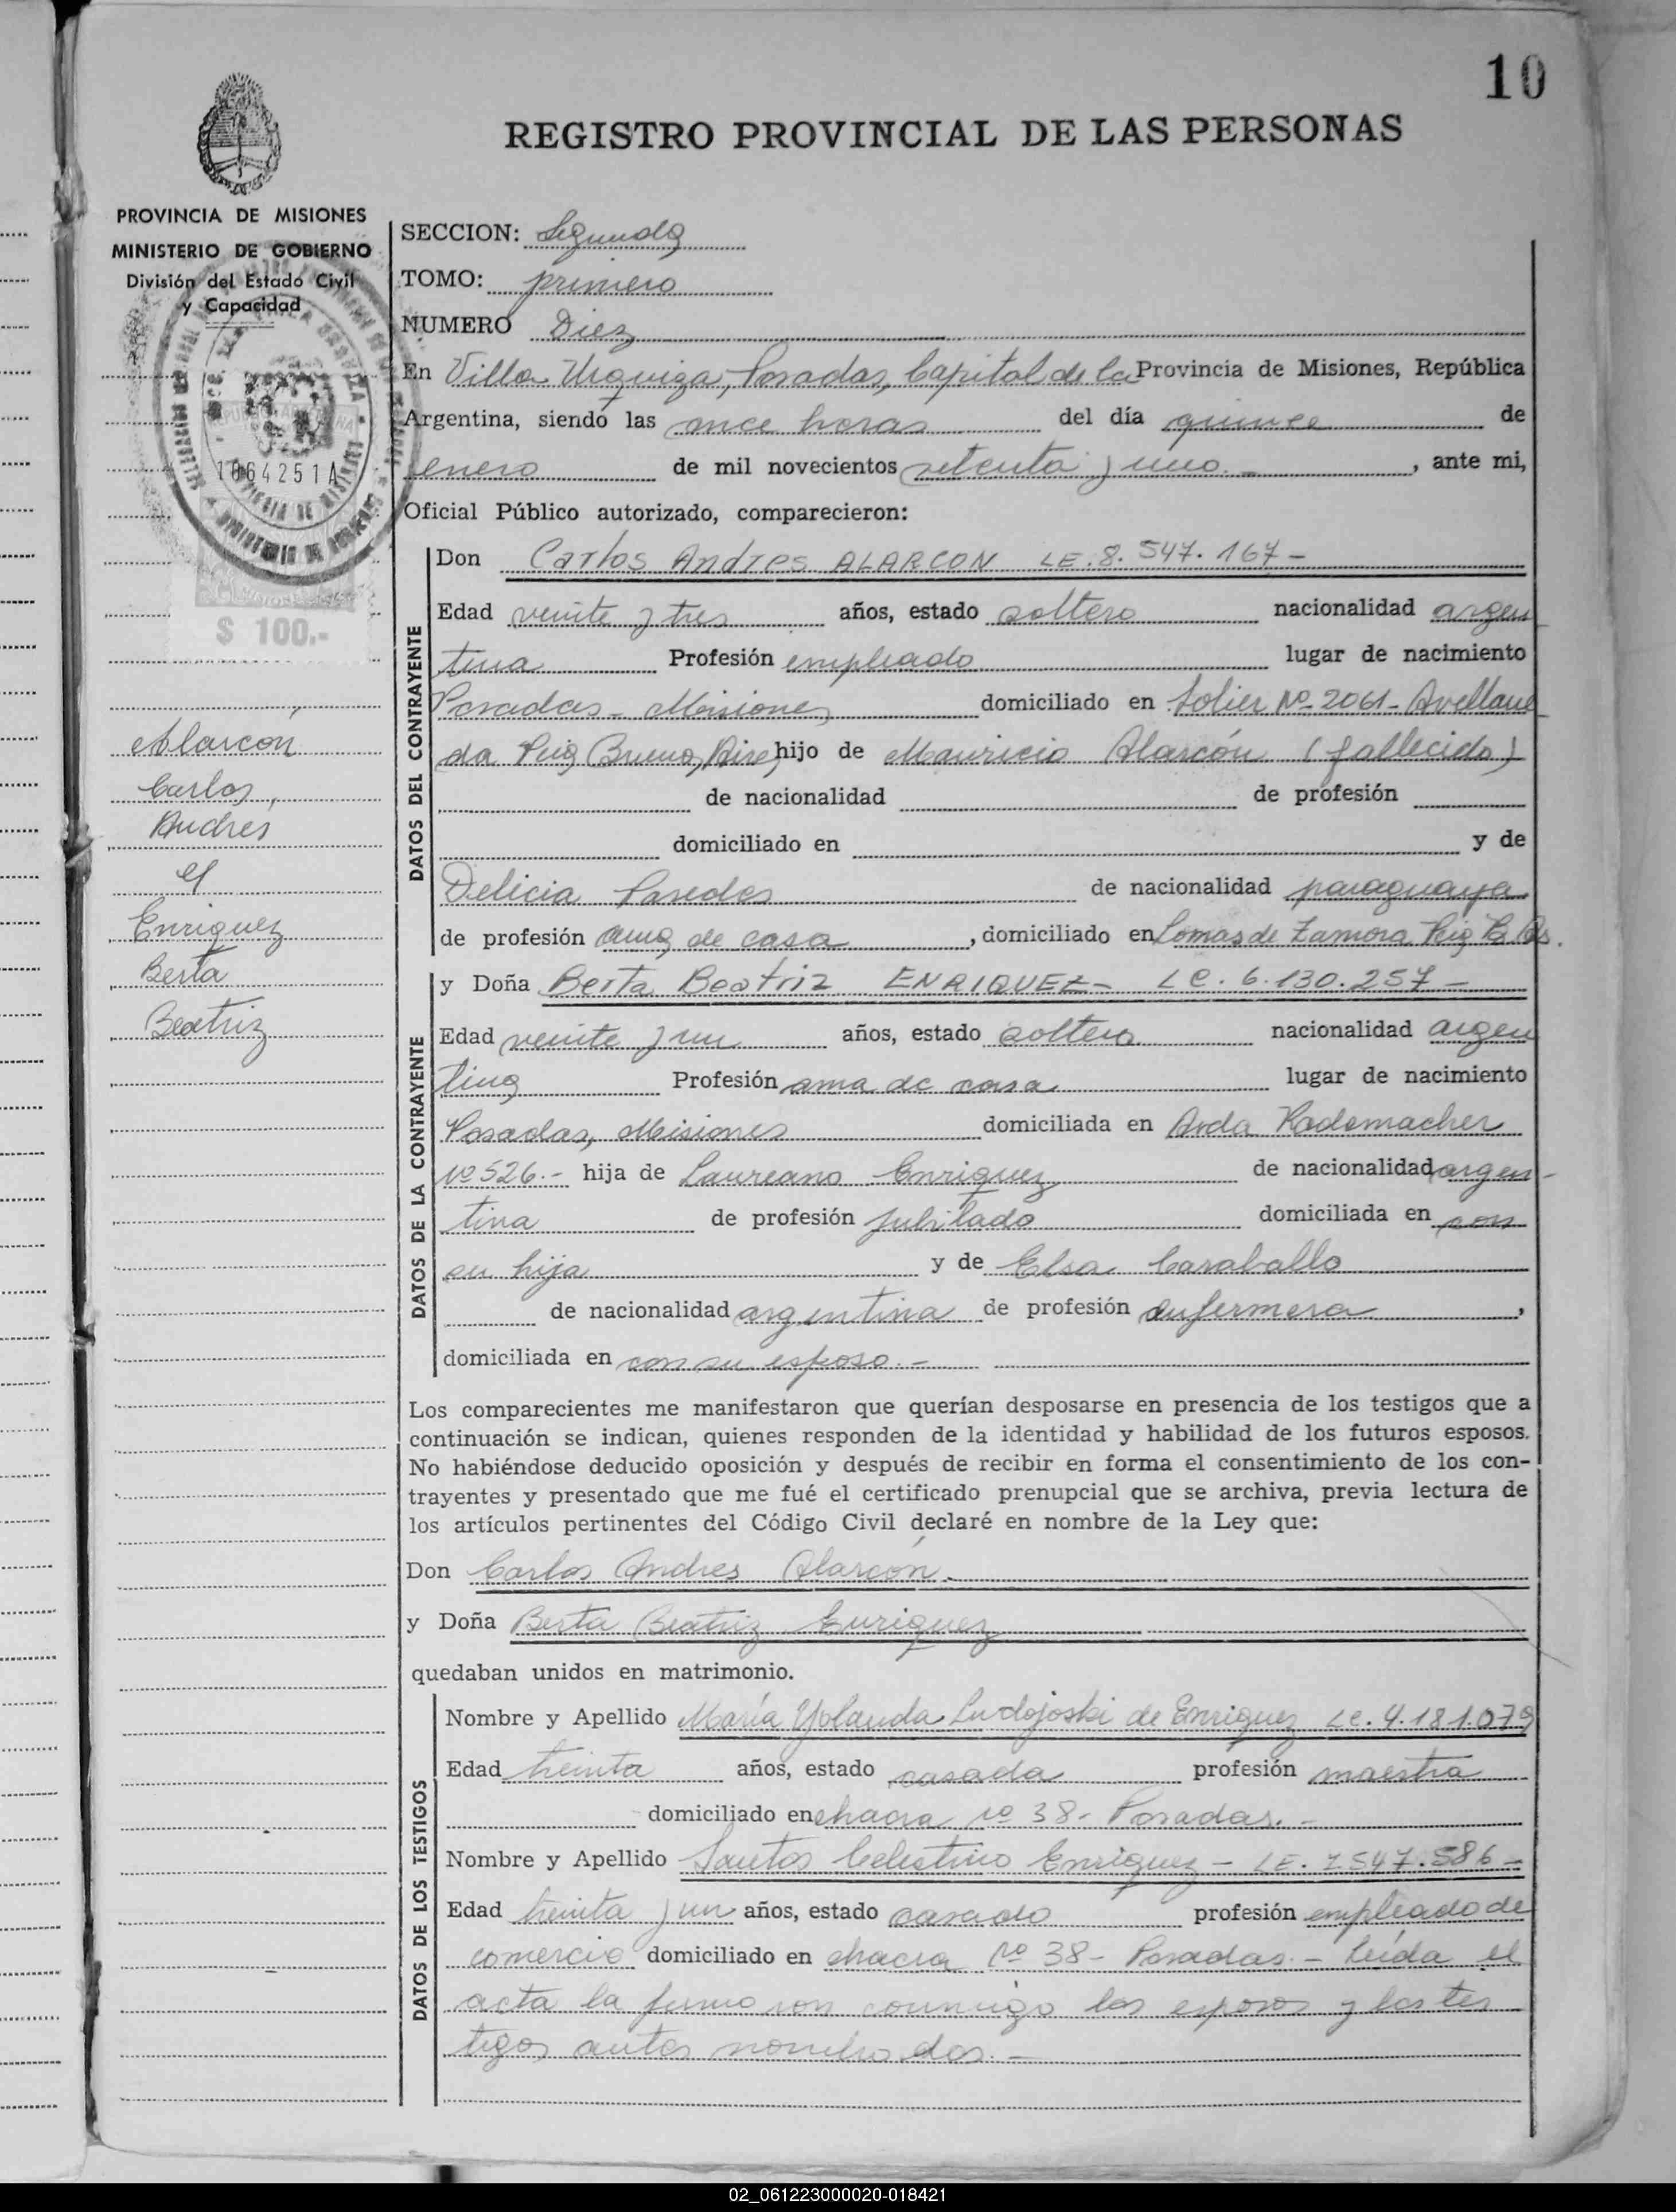 10
REGISTRO PROVINCIAL DE LAS PERSONAS
PROVINCIA DE MISIONES
MINISTERIO DE GOBIERNO
División del Estado Civil
y Capacidad
1064251A
$ 100.-
Alarcón
Carlos
Andrés
y
Enriquez
Berta
Beatriz
SECCION: Segunda
TOMO: primero
NUMERO Diez
En Villa Urquiza, Posadas, Capital de la Provincia de Misiones, República
Argentina, siendo las once horas del día quince de
enero de mil novecientos setenta y uno.-, ante mi,
Oficial Público autorizado, comparecieron:
DATOS DEL CONTRAYENTE
Don Carlos Andres ALARCON LE. 8. 547. 167-
Edad veinte y tres años, estado soltero nacionalidad argen
tina Profesión empleado lugar de nacimiento
Posadas - Misiones domiciliado en Solier Nº 2061- Avellane
da Buenos Aires hijo de Mauricio Alarcón (fallecido)
de nacionalidad de profesión
domiciliado en y de
Delicia Paredes de nacionalidad paraguaya
de profesión ama de casa, domiciliado en Lomas de Zamora Bs.
DATOS DE LA CONTRAYENTE
y Doña Berta Beatriz ENRIQUEZ- LC. 6.130.257-
Edad veinte y un años, estado soltera nacionalidad argen
tina Profesión ama de casa lugar de nacimiento
Posadas, Misiones domiciliada en Avda Rademacher
Nº 526.- hija de Laureano Enriquez de nacionalidad argen-
tina de profesión jubilado domiciliada en con
su hija y de Elsa Caraballo
de nacionalidad argentina de profesión enfermera,
domiciliada en con su esposo.-
Los comparecientes me manifestaron que querían desposarse en presencia de los testigos que a
continuación se indican, quienes responden de la identidad y habilidad de los futuros esposos.
No habiéndose deducido oposición y después de recibir en forma el consentimiento de los con-
trayentes y presentado que me fué el certificado prenupcial que se archiva, previa lectura de
los artículos pertinentes del Código Civil declaré en nombre de la Ley que:
Don Carlos Andres Alarcón.
y Doña Berta Beatriz Enriquez
quedaban unidos en matrimonio.
DATOS DE LOS TESTIGOS
Nombre y Apellido María Yolanda Ludojoski de Enriquez LC. 4.181.079
Edad treinta años, estado casada profesión maestra
domiciliado en chacra nº 38- Posadas.-
Nombre y Apellido Santos Celestino Enriquez - LE. 7547.586-
Edad treinta y un años, estado casado profesión empleado de
comercio domiciliado en chacra Nº 38- Posadas.- Leída el
acta la firmaron conmigo los esposos y los tes
tigos antes nombrados.-
02_061223000020-018421